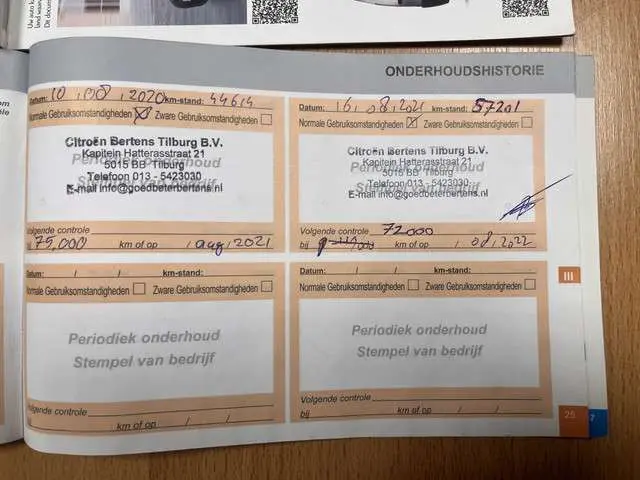 ONDERHOUDSHISTORIE
Datum: 10 , 08 , 2020 km-stand: 44614
Normale Gebruiksomstandigheden Zware Gebruiksomstandigheden
Citroën Bertens Tilburg B.V.
Kapitein Hatterasstraat 21
5015 BB Tilburg
Telefoon 013 - 5423030
E-mail info@goedbeterbertens.nl
Periodiek onderhoud
Stempel van bedrijf
Volgende controle
bij 75,000 km of op / aug, 2021
Datum: 16, 08, 2021 km-stand: 57201
Normale Gebruiksomstandigheden Zware Gebruiksomstandigheden
Citroën Bertens Tilburg B.V.
Kapitein Hatterasstraat 21
5015 BB Tilburg
Telefoon 013 - 5423030
E-mail info@goedbeterbertens.nl
Periodiek onderhoud
Stempel van bedrijf
Volgende controle 72000
bij km of op / 08, 2022
Datum: / / km-stand:
Normale Gebruiksomstandigheden Zware Gebruiksomstandigheden
Periodiek onderhoud
Stempel van bedrijf
Volgende controle
bij km of op / /
Datum: / / km-stand:
Normale Gebruiksomstandigheden Zware Gebruiksomstandigheden
Periodiek onderhoud
Stempel van bedrijf
Volgende controle
bij km of op / /
III
25
7